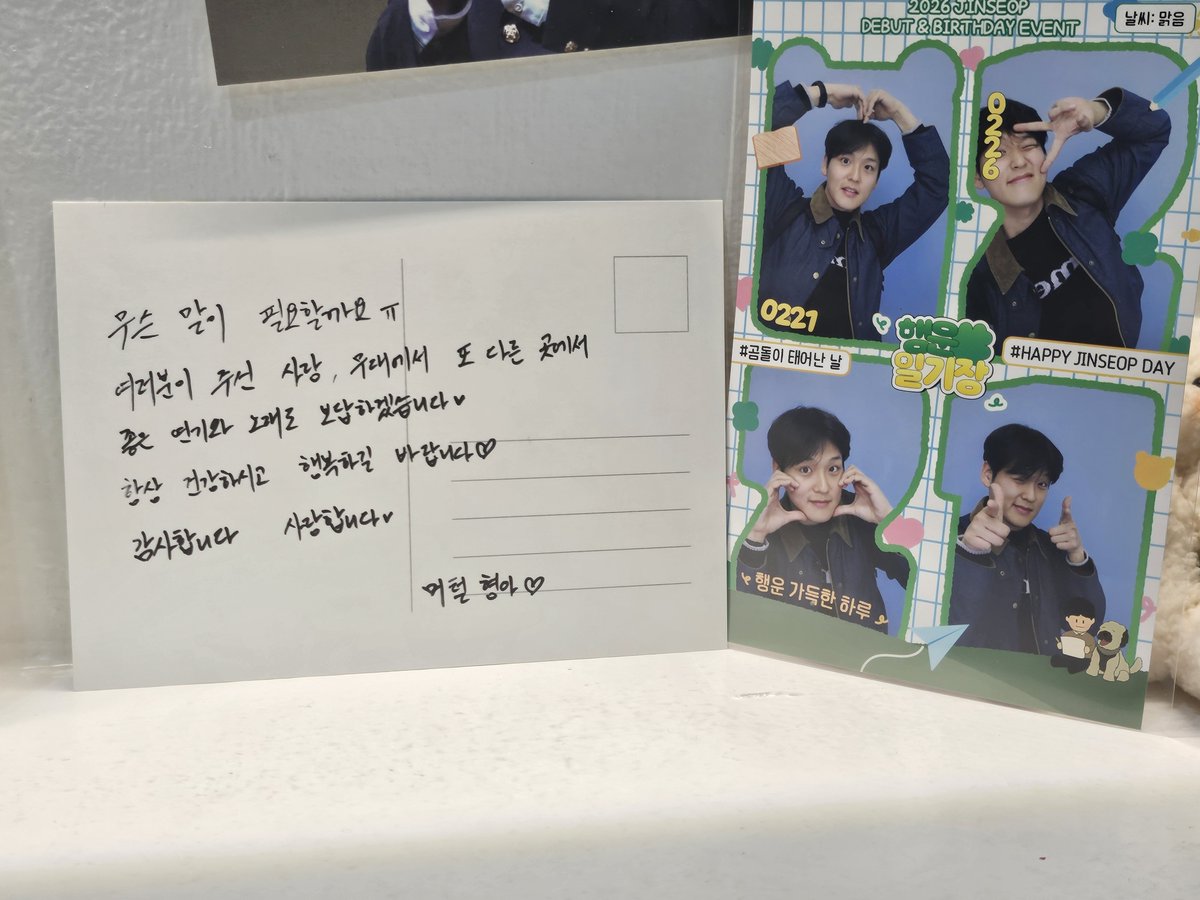 무슨 말이 필요할까요 ㅠ
여러분이 주신 사랑, 무대에서 또 다른 곳에서
좋은 연기와 노래로 보답하겠습니다♥
항상 건강하시고 행복하길 바랍니다♡
감사합니다 사랑합니다♥
머털 형아♡
2026 JINSEOP
DEBUT & BIRTHDAY EVENT
날씨: 맑음
0226
0221
#곰돌이 태어난 날
행운
일기장
#HAPPY JINSEOP DAY
행운 가득한 하루